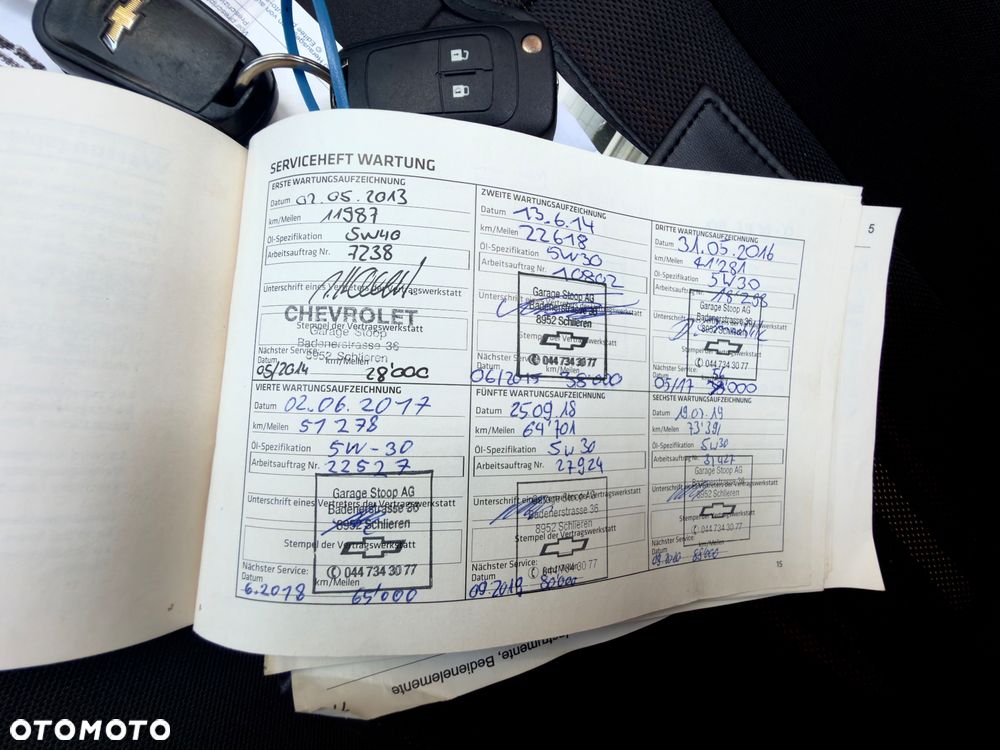 SERVICEHEFT WARTUNG
ERSTE WARTUNGSAUFZEICHNUNG
Datum 02.05.2013
km/Meilen 11987
Öl-Spezifikation 5W40
Arbeitsauftrag Nr. 7238
Unterschrift eines Vertreters der Vertragswerkstatt
CHEVROLET
Stempel der Vertragswerkstatt
Garage Stoop
Badenerstrasse 36
8952 Schlieren
Nächster Service:
Datum km/Meilen
05/2014 28'000
ZWEITE WARTUNGSAUFZEICHNUNG
Datum 13.6.14
km/Meilen 22618
Öl-Spezifikation 5W30
Arbeitsauftrag Nr. 10802
Unterschrift
Garage Stoop AG
Badenerstrasse 36
8952 Schlieren
Stempel der Vertragswerkstatt
044 734 30 77
Nächster Service:
Datum km/Meilen
06/2015 38'000
DRITTE WARTUNGSAUFZEICHNUNG
Datum 31.05.2016
km/Meilen 41'281
Öl-Spezifikation 5W30
Arbeitsauftrag Nr. 18298
Garage Stoop AG
Badenerstrasse 36
8952 Schlieren
Stempel der Vertragswerkstatt
044 734 30 77
Nächster Service:
Datum km/Meilen
56
05/17 000
VIERTE WARTUNGSAUFZEICHNUNG
Datum 02.06.2017
km/Meilen 51278
Öl-Spezifikation 5W-30
Arbeitsauftrag Nr. 22527
Garage Stoop AG
Unterschrift eines Vertreters der Vertragswerkstatt
Badenerstrasse 36
8952 Schlieren
Stempel der Vertragswerkstatt
044 734 30 77
Nächster Service:
Datum km/Meilen
6.2018 65'000
FÜNFTE WARTUNGSAUFZEICHNUNG
Datum 25.09.18
km/Meilen 64'701
Öl-Spezifikation 5W30
Arbeitsauftrag Nr. 27924
Garage Stoop AG
Unterschrift eines Vertreters der Vertragswerkstatt
Badenerstrasse 36
8952 Schlieren
Stempel der Vertragswerkstatt
044 734 30 77
Nächster Service:
Datum km/Meilen
09.2019 80'000
SECHSTE WARTUNGSAUFZEICHNUNG
Datum 19.07.19
km/Meilen 73'391
Öl-Spezifikation 5W30
Arbeitsauftrag Nr. 31427
Garage Stoop AG
Unterschrift eines Vertreters der Vertragswerkstatt
Badenerstrasse 36
8952 Schlieren
Stempel der Vertragswerkstatt
044 734 30 77
Nächster Service:
Datum km/Meilen
09.2020 88'000
15
5
Instrumente, Bedienelemente
OTOMOTO